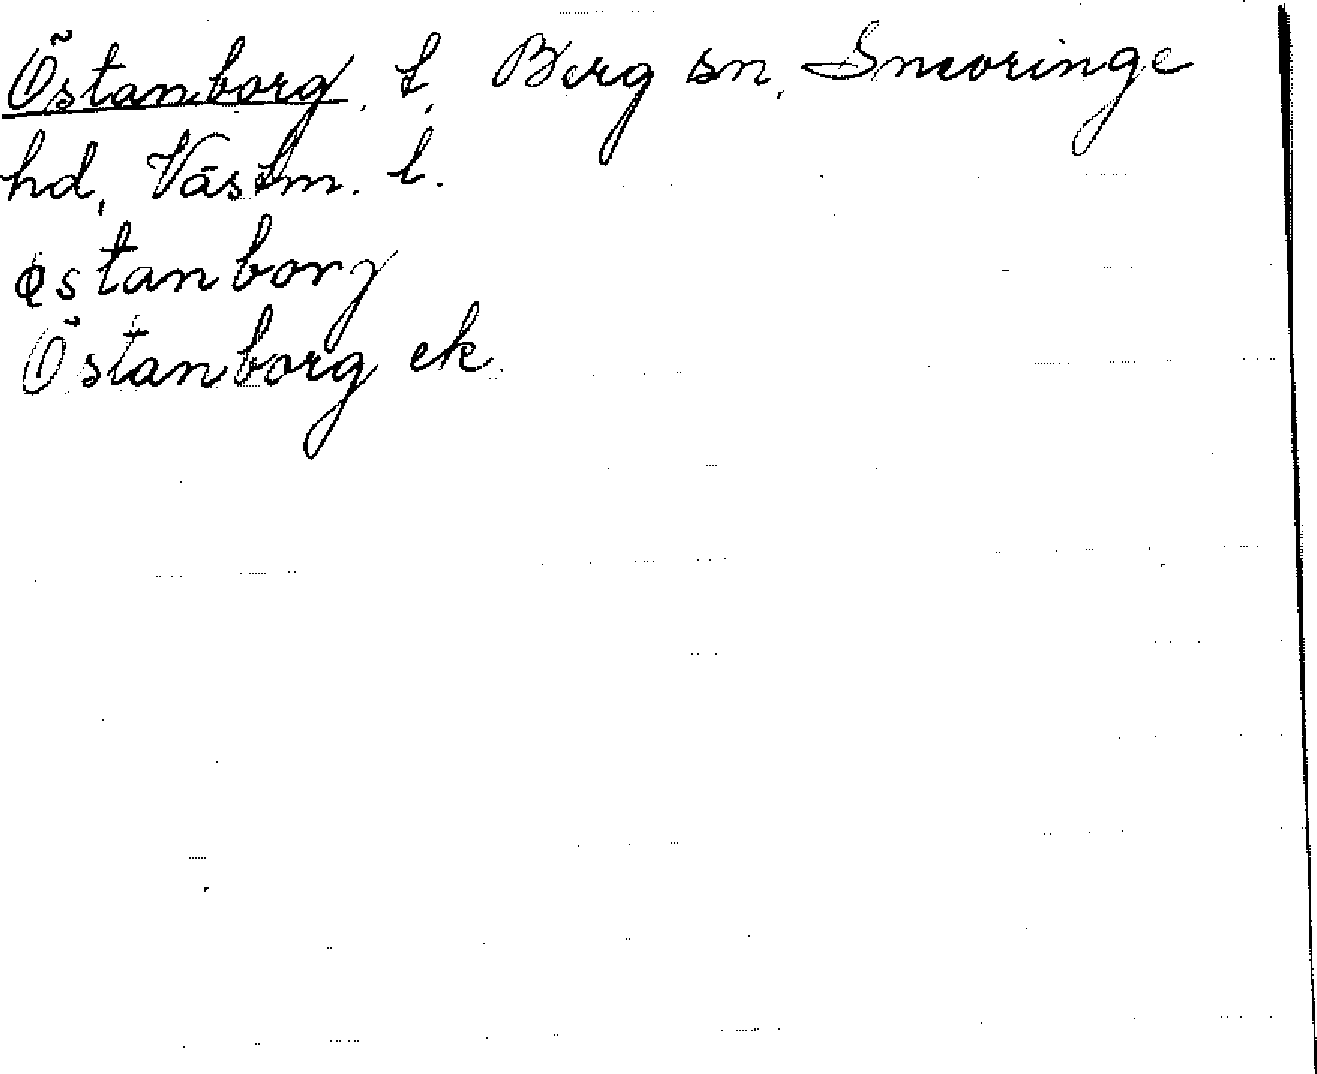 Östanborg, t, Berg sn, Snevringe
hd, Västm. l.
östanborj
Östanborg ek.